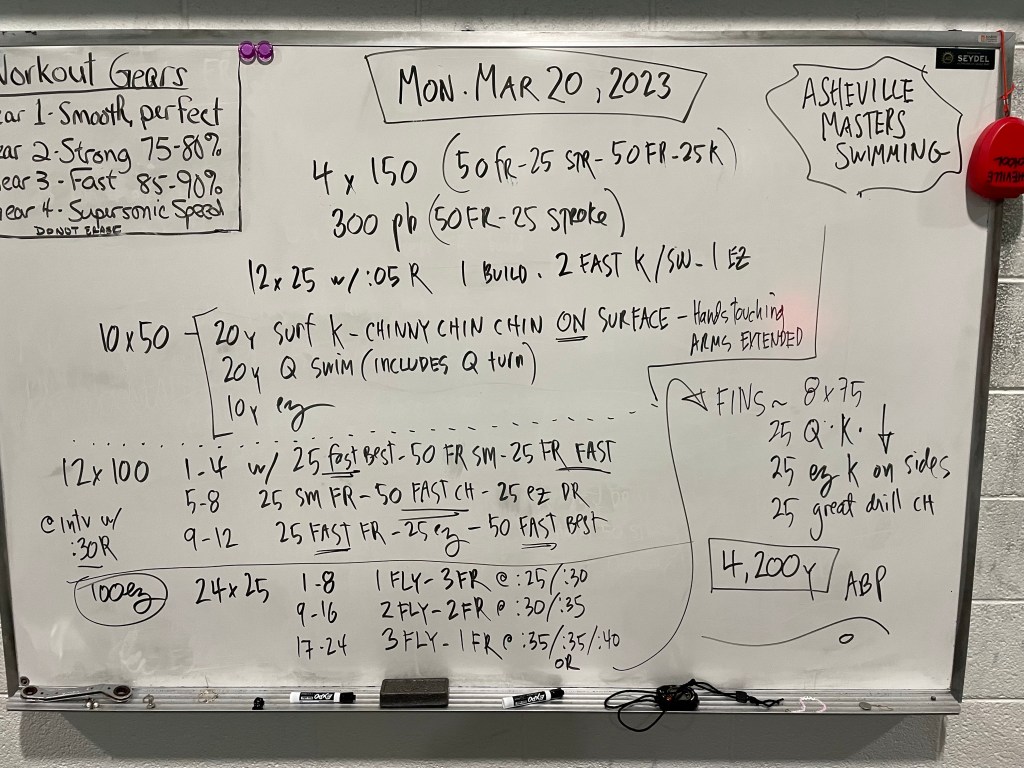 Workout Gears
ear 1-Smooth, perfect
ear 2-Strong 75-80%
ear 3-Fast 85-90%
ear 4-Supersonic Speed
DO NOT ERASE
MON. MAR 20, 2023
SEYDEL
ASHEVILLE
MASTERS
SWIMMING
4 x 150 (50 FR-25 STR-50 FR-25K)
300 pb (50 FR-25 STROKE)
12 x 25 w/:05 R 1 BUILD. 2 FAST K/SW-1 EZ
10x50 - 20y surf K-CHINNY CHIN CHIN ON SURFACE - Hands touching
ARMS EXTENDED
20y Q SWIM (INCLUDES Q turn)
10y ez
12x100 1-4 w/ 25 fast Best-50 FR SM-25 FR FAST
5-8 25 SM FR-50 FAST CH-25 ez DR
@ intv w/
:30R
9-12 25 FAST FR-25 ez-50 FAST BEST
100ez 24x25 1-8 1 FLY-3FR @ :25/:30
9-16 2 FLY-2FR @ :30/:35
17-24 3 FLY-1 FR @ :35/:35/:40
OR
FINS~ 8x75
25 Q·K·
25 ez k on sides
25 great drill CH
4,200y ABP
EXPO
EXPO